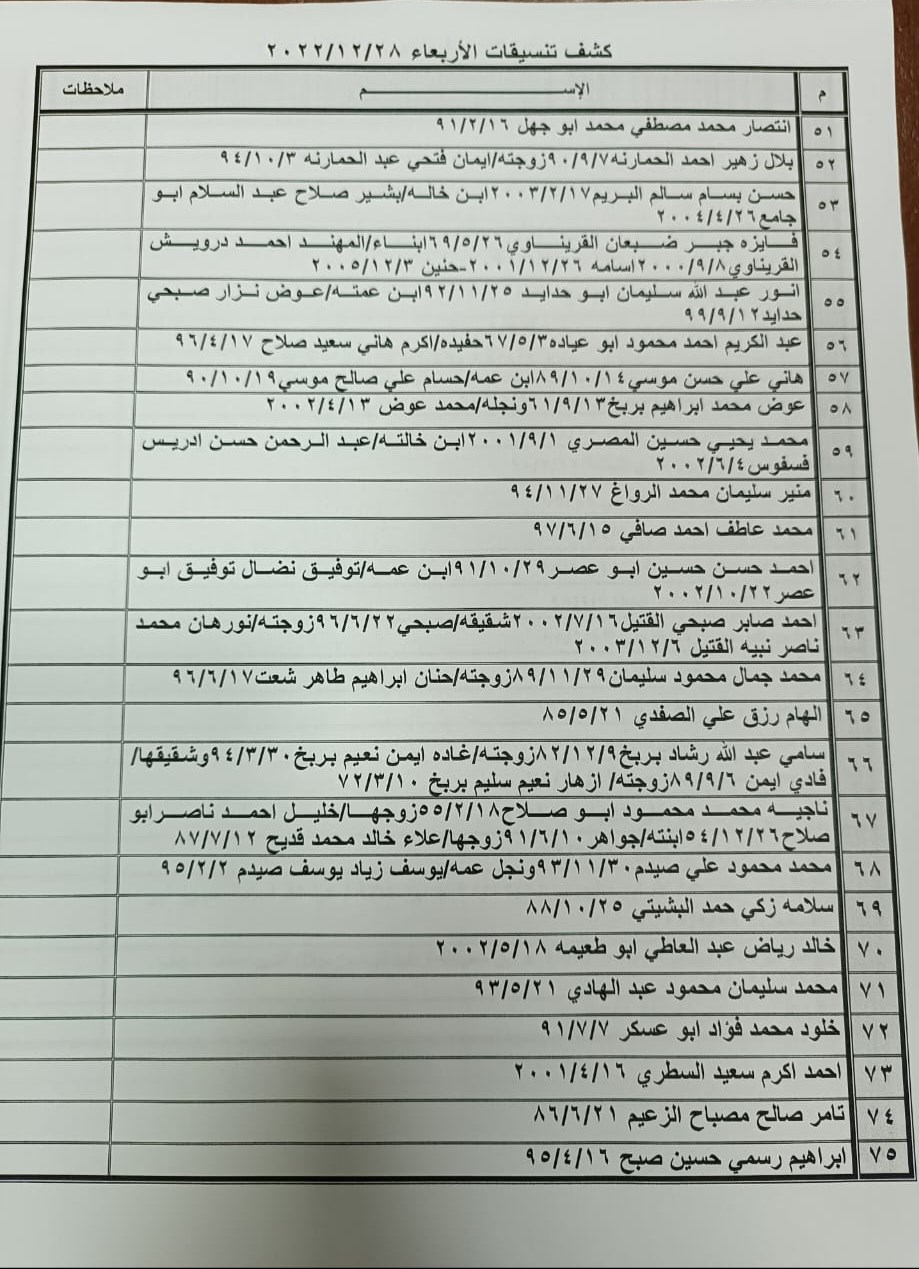 كشف تنسيقات الأربعاء ٢٠٢٢/١٢/٢٨
م الإســـم ملاحظات
٥١ انتصار محمد مصطفي محمد ابو جهل ٩١/٢/١٦
٥٢ بلال زهير احمد الحمارنه٩٠/٩/٧زوجته/ايمان فتحي عبد الحمارنه ٩٤/١٠/٣
٥٣ حسن بسام سالم البريم٢٠٠٣/٢/١٧ابن خاله/بشير صلاح عبد السلام ابو
جامع٢٠٠٤/٤/٢٦
٥٤ فايزه جبر ضبعان القريناوي٦٩/٥/٢٦ابناء/المهند احمد درويش
القريناوي٢٠٠٠/٩/٨اسامه ٢٠٠١/١٢/٢٦-حنين ٢٠٠٥/١٢/٣
٥٥ انور عبد الله سليمان ابو حدايد ٩٢/١١/٢٥ابن عمته/عوض نزار صبحي
حدايد٩٩/٩/١٢
٥٦ عبد الكريم احمد محمود ابو عياده٦٧/٥/٣حفيده/اكرم هاني سعيد صلاح ٩٦/٤/١٧
٥٧ هاني علي حسن موسي٨٩/١٠/١٤ابن عمه/حسام علي صالح موسي٩٠/١٠/١٩
٥٨ عوض محمد ابراهيم بربخ٦١/٩/١٣ونجله/محمد عوض ٢٠٠٢/٤/١٣
٥٩ محمد يحيي حسين المصري ٢٠٠١/٩/١ابن خالته/عبد الرحمن حسن ادريس
فسفوس٢٠٠٢/٦/٤
٦٠ منير سليمان محمد الرواغ ٩٤/١١/٢٧
٦١ محمد عاطف احمد صافي ٩٧/٦/١٥
٦٢ احمد حسن حسين ابو عصر٩١/١٠/٢٩ابن عمه/توفيق نضال توفيق ابو
عصر٢٠٠٢/١٠/٢٢
٦٣ احمد صابر صبحي القتيل٢٠٠٢/٧/١٦شقيقه/صبحي٩٦/٦/٢٢زوجته/نورهان محمد
ناصر نبيه القتيل ٢٠٠٣/١٢/٦
٦٤ محمد جمال محمود سليمان٨٩/١١/٢٩زوجته/حنان ابراهيم طاهر شعت٩٦/٦/١٧
٦٥ الهام رزق علي الصفدي ٨٥/٥/٢١
٦٦ سامي عبد الله رشاد بربخ٨٢/١٢/٩زوجته/غاده ايمن نعيم بربخ٩٤/٣/٣٠وشقيقها/
فادي ايمن ٨٩/٩/٦زوجته/ ازهار نعيم سليم بربخ ٧٢/٣/١٠
٦٧ ناجيه محمد محمود ابو صلاح٥٥/٢/١٨زوجها/خليل احمد ناصر ابو
صلاح٥٤/١٢/٢٦ابنته/جواهر٩١/٦/١٠زوجها/علاء خالد محمد قديح ٨٧/٧/١٢
٦٨ محمد محمود علي صيدم٩٣/١١/٣٠ونجل عمه/يوسف زياد يوسف صيدم ٩٥/٢/٢
٦٩ سلامه زكي حمد البشيتي ٨٨/١٠/٢٥
٧٠ خالد رياض عبد العاطي ابو طعيمه ٢٠٠٢/٥/١٨
٧١ محمد سليمان محمود عبد الهادي ٩٣/٥/٢١
٧٢ خلود محمد فؤاد ابو عسكر ٩١/٧/٧
٧٣ احمد اكرم سعيد السطري ٢٠٠١/٤/١٦
٧٤ تامر صالح مصباح الزعيم ٨٦/٦/٢١
٧٥ ابراهيم رسمي حسين صبح ٩٥/٤/١٦